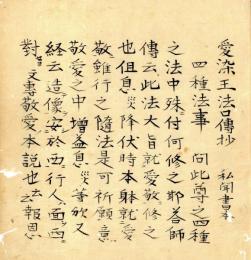 愛染王法口傳抄
私聞書本
四種法事 問此尊之四種
之法中殊付何修之耶答師
傳云此法大旨就愛敬修之
也但息災降伏時本躰就愛
敬雖行之隨法是可祈願意
敬愛之中增益息災等欲又
経云造像安於西行人面西
對 文專敬愛本説也云云報恩